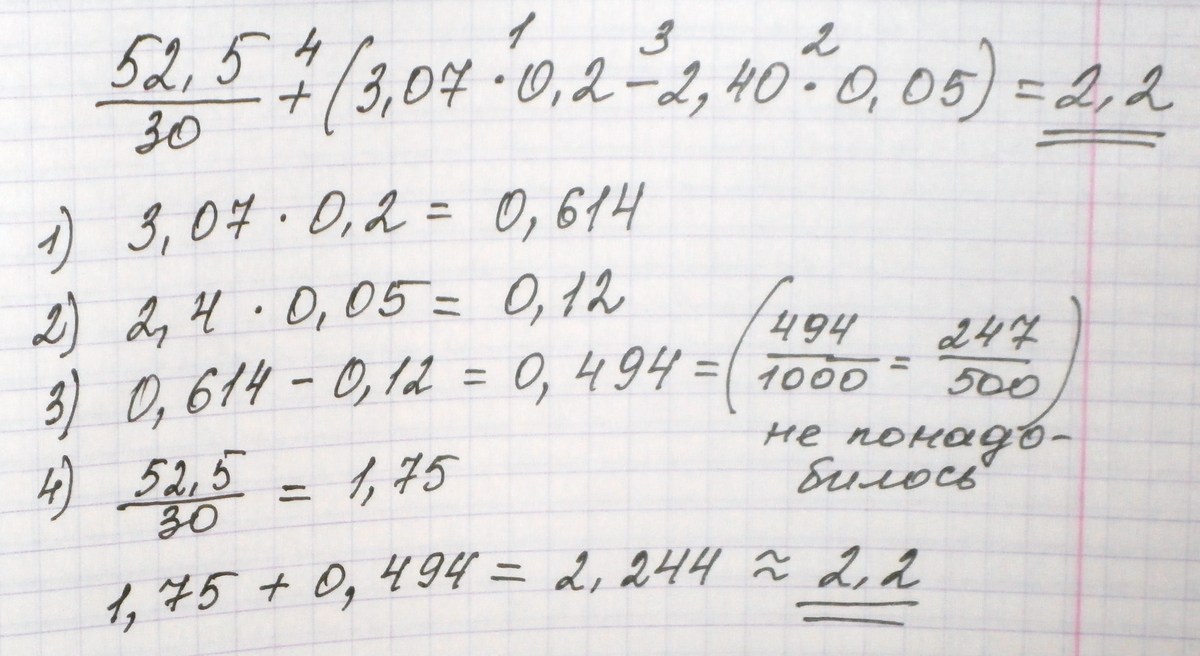 52,5/30 + (3,07 · 0,2 − 2,40 · 0,05) = 2,2
4 1 3 2
1) 3,07 · 0,2 = 0,614
2) 2,4 · 0,05 = 0,12
3) 0,614 − 0,12 = 0,494 = (494/1000 = 247/500)
не понадо-
билось
4) 52,5/30 = 1,75
1,75 + 0,494 = 2,244 ≈ 2,2